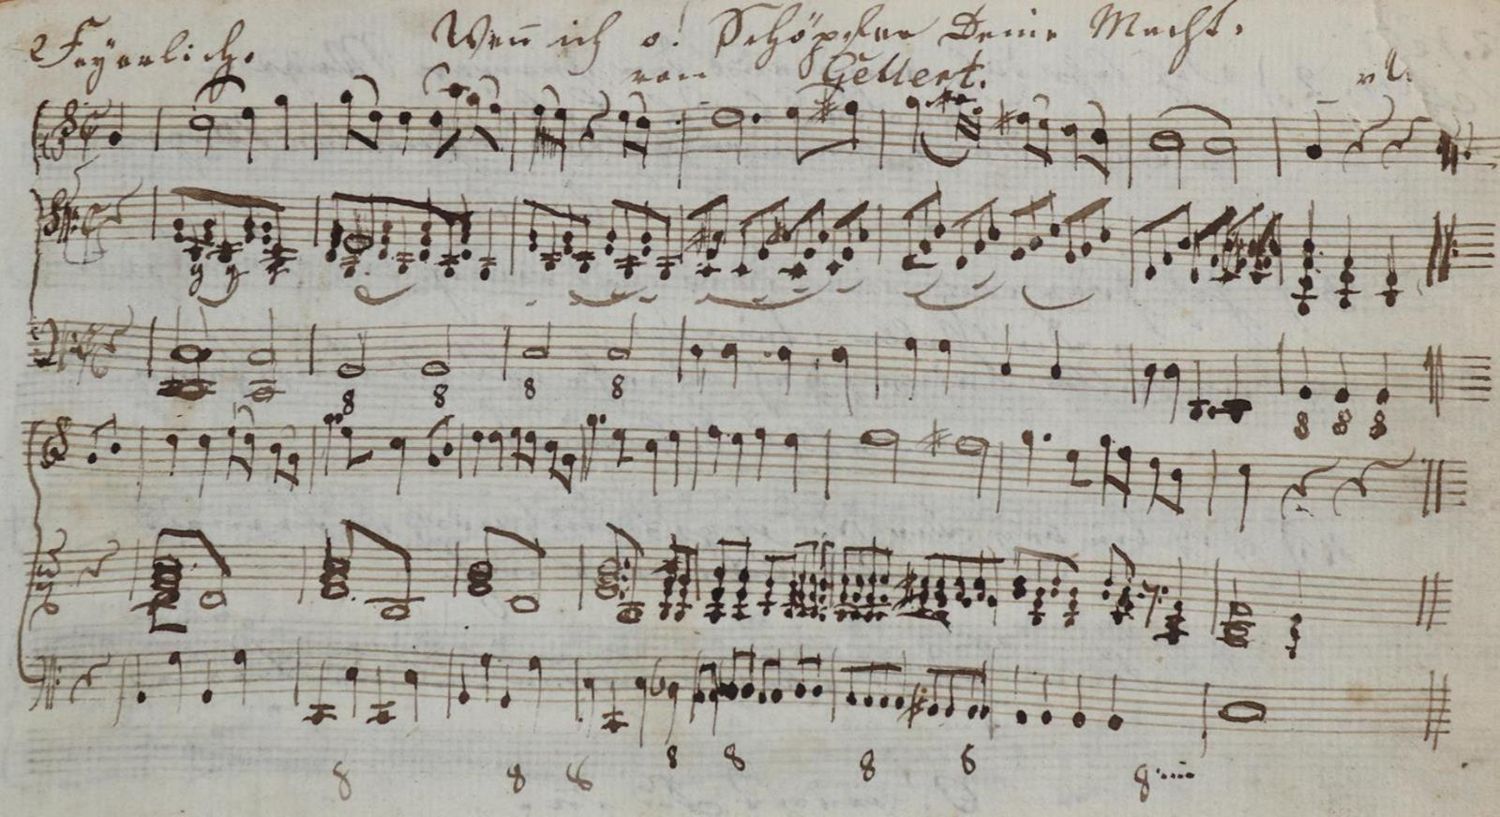 Feyerlich.
Wen̄ ich o! Schöpfer Deine Macht.
von Gellert.
8 8 8 8
8 8 8
8 8 8 8 8 8 6 8